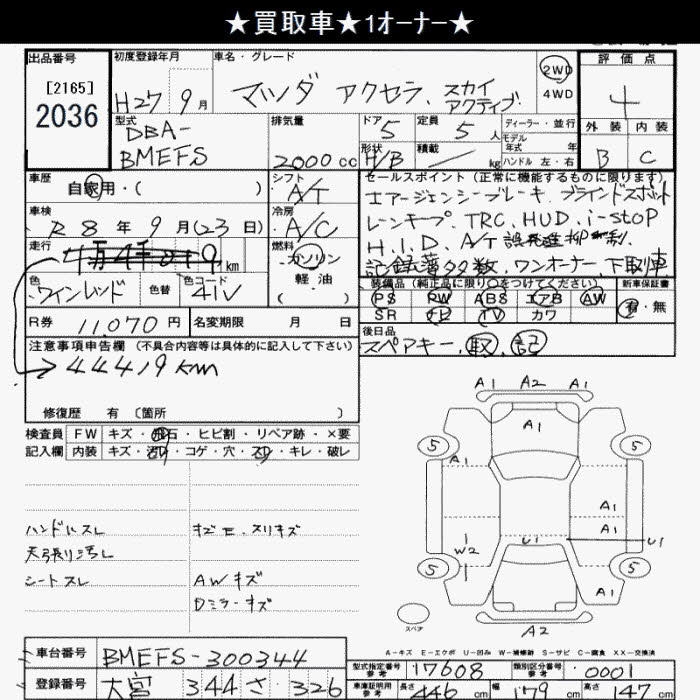 ★買取車★1オーナー★
出品番号
[2165]
2036
初度登録年月
H27 9月
車名・グレード
マツダ アクセラ、スカイアクティブ
2WD
4WD
評価点
4
外装 内装
B C
型式
DBA-
BMEFS
排気量
2000cc
ドア 5
形状 H/B
定員 5人
積載 / kg
ディーラー・並行
モデル年式 年式
ハンドル 左・右
車歴
自家用・( )
シフト
A/T
車検
R8年9月(23日)
冷房
A/C
走行
km
燃料
ガソリン
軽油
( )
色
ワインレッド
色替
色コード
41V
セールスポイント(正常に機能するものに限ります)
エマージェンシーブレーキ、ブラインドスポット
レーンキープ、TRC、HUD、i-STOP
H.I.D、A/T誤発進抑制、
記録簿多数、ワンオーナー、下取車
装備品(純正品に限り○をつけてください) 新車保証書
PS PW ABS エアB AW 有・無
SR ナビ TV カワ
R券 11,070円
名変期限 月 日
後日品
スペアキー、取、記
注意事項申告欄 (不具合内容等は具体的に記入して下さい)
44419km
修復歴 有 〔箇所 〕
検査員
記入欄
FW キズ・飛石・ヒビ割・リペア跡・×要
内装 キズ・汚れ・コゲ・穴・スレ・キレ・破レ
ハンドルスレ
天張り汚レ
シートスレ
キズE、スリキズ
AWキズ
Dミラーキズ
A1 A2 A1
A1
5 5
A1
A1
A1
W2
U1
U1
5 5
A1
スペア
A2
A-キズ E-エクボ U-凹み W-補修跡 S-サビ C-腐食 XX-交換済
車台番号
BMEFS-300344
登録番号
大宮 344 さ 326
型式指定番号
参考
17608
類別区分番号
参考
0001
車庫証明用
参考
長さ 446cm
幅 179cm
高さ 147cm